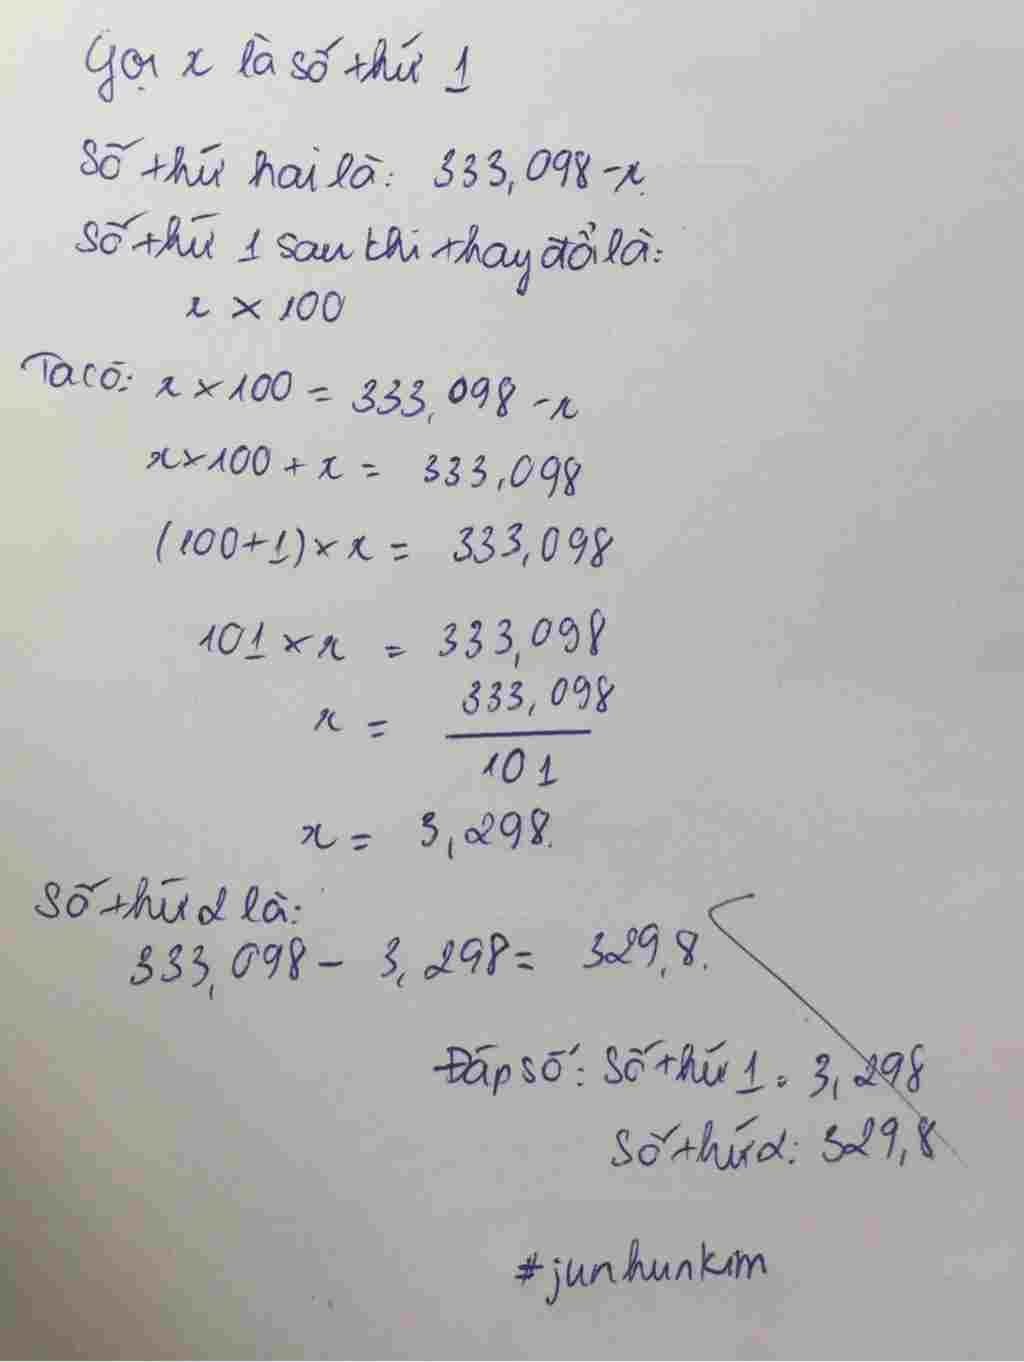 Gọi x là số thứ 1
Số thứ hai là: 333,098 - x
Số thứ 1 sau khi thay đổi là:
x × 100
Ta có: x × 100 = 333,098 - x
x × 100 + x = 333,098
(100+1) × x = 333,098
101 × x = 333,098
x = 333,098
101
x = 3,298.
Số thứ 2 là:
333,098 - 3,298 = 329,8.
Đáp số: Số thứ 1: 3,298
Số thứ 2: 329,8
#junhunkim